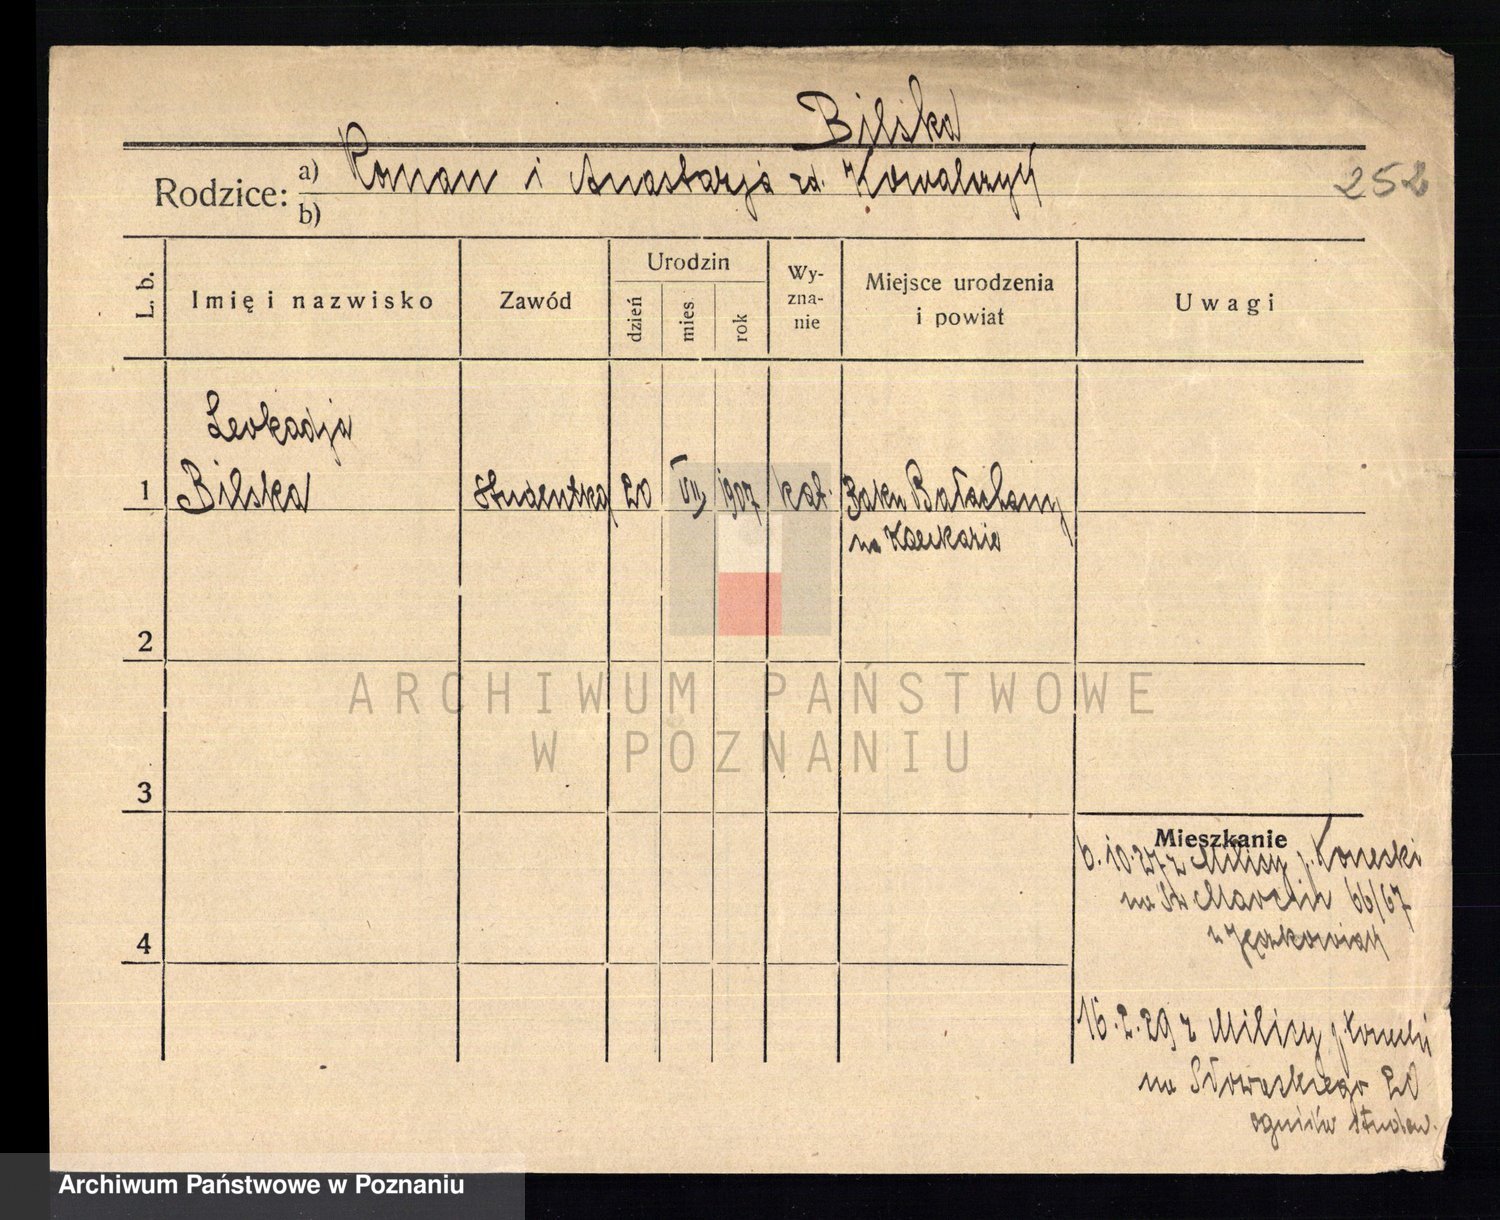 Bilska
Rodzice: a) Roman i Anastazja zd. Kowalczyk
252
b)
L. b. Imię i nazwisko Zawód Urodzin dzień mies rok Wyznanie Miejsce urodzenia i powiat Uwagi
Leokadja
1 Bilska studentka 20 VII 1907 kat. Baku Bałachany
na Kaukazie
2
ARCHIWUM PAŃSTWOWE
W POZNANIU
3
Mieszkanie
6.10.27 z Milicz p. Konecki
na Św Marcin 66/67
4
16.2.29 z Milicz p Konecki
na Słowackiego 20
Archiwum Państwowe w Poznaniu